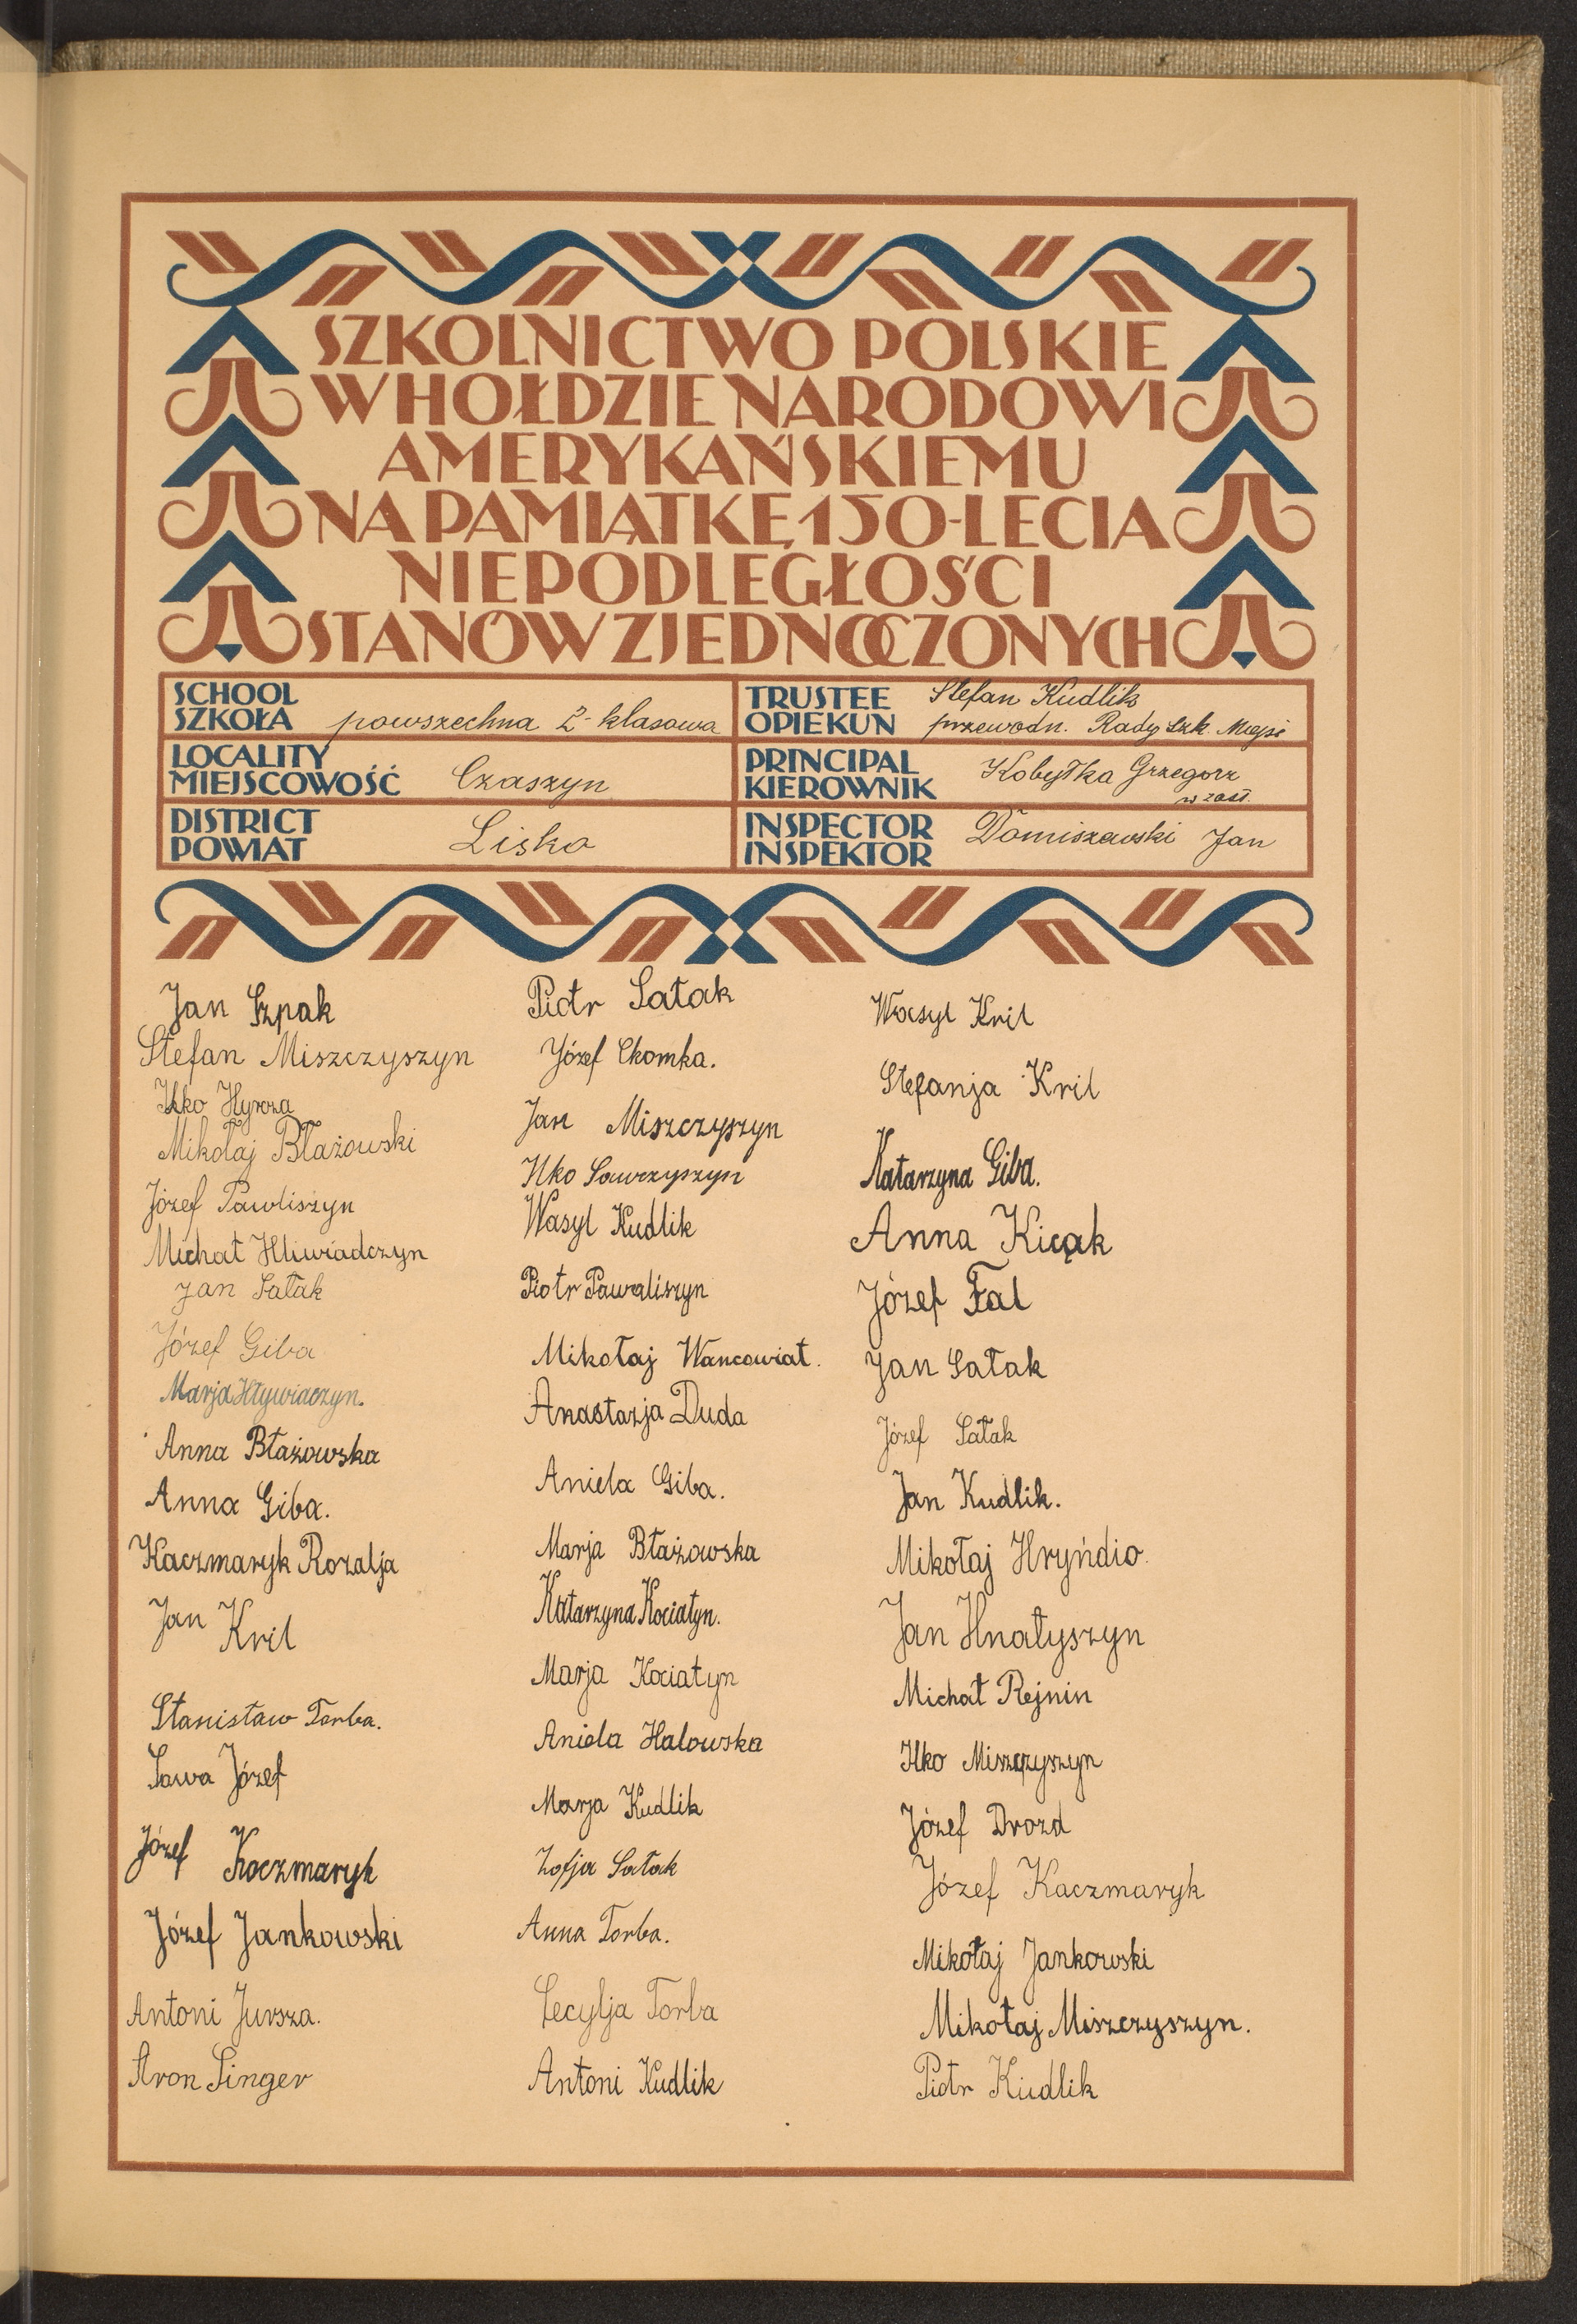 SZKOLNICTWO POLSKIE
W HOŁDZIE NARODOWI
AMERYKAŃSKIEMU
NA PAMIĄTKĘ 150-LECIA
NIEPODLEGŁOŚCI
STANÓW ZJEDNOCZONYCH
SCHOOL
SZKOŁA powszechna 2-klasowa
TRUSTEE Stefan Kudlik
OPIEKUN przewodn. Rady Szk. Miejsc
LOCALITY
MIEJSCOWOŚĆ Czaszyn
PRINCIPAL
KIEROWNIK Kobyłka Grzegorz
w zast.
DISTRICT
POWIAT Lisko
INSPECTOR
INSPEKTOR Domiszewski Jan
Jan Szpak
Stefan Miszczyszyn
Ilko
Mikołaj Błażowski
Józef Pawliszyn
Michał Hliwiadczyn
Jan Sałak
Józef Giba
Marja Hływiaczyn.
Anna Błażowska
Anna Giba.
Kaczmaryk Rozalja
Jan Kril
Stanisław Torba.
Sawa Józef
Józef Kaczmaryk
Józef Jankowski
Antoni Jursza.
Aron Singer
Piotr Sałak
Józef Chomka.
Jan Miszczyszyn
Ilko Sawczyszyn
Wasyl Kudlik
Piotr Pawaliszyn
Mikołaj Wancowiat.
Anastazja Duda
Aniela Giba.
Marja Błażowska
Katarzyna Kociałyn.
Marja Kociatyn
Aniela Halowska
Marja Kudlik
Zofja Sałak
Anna Torba.
Cecylja Torba
Antoni Kudlik
Wasyl Kril
Stefanja Kril
Katarzyna Giba.
Anna Kicąk
Józef Fal
Jan Sałak
Józef Sałak
Jan Kudlik.
Mikołaj Hryńdio
Jan Hnatyszyn
Michał Rejnin
Ilko Miszczyszyn
Józef Drozd
Józef Kaczmaryk
Mikołaj Jankowski
Mikołaj Miszczyszyn.
Piotr Kudlik